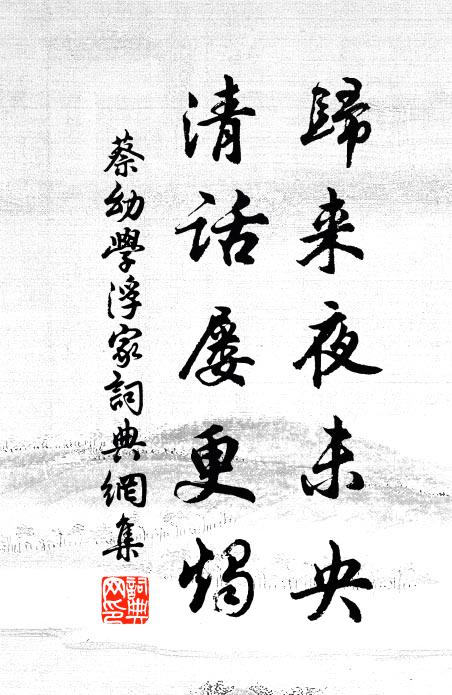 歸来夜未央
清話屢更燭
蔡幼學浮家詞典網集
詞典網印